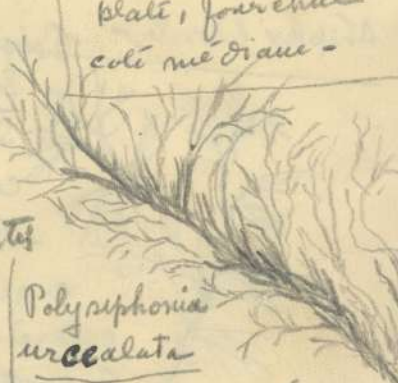 plate, fourchue
côté médiane -
tes
Polysiphonia
urceolata